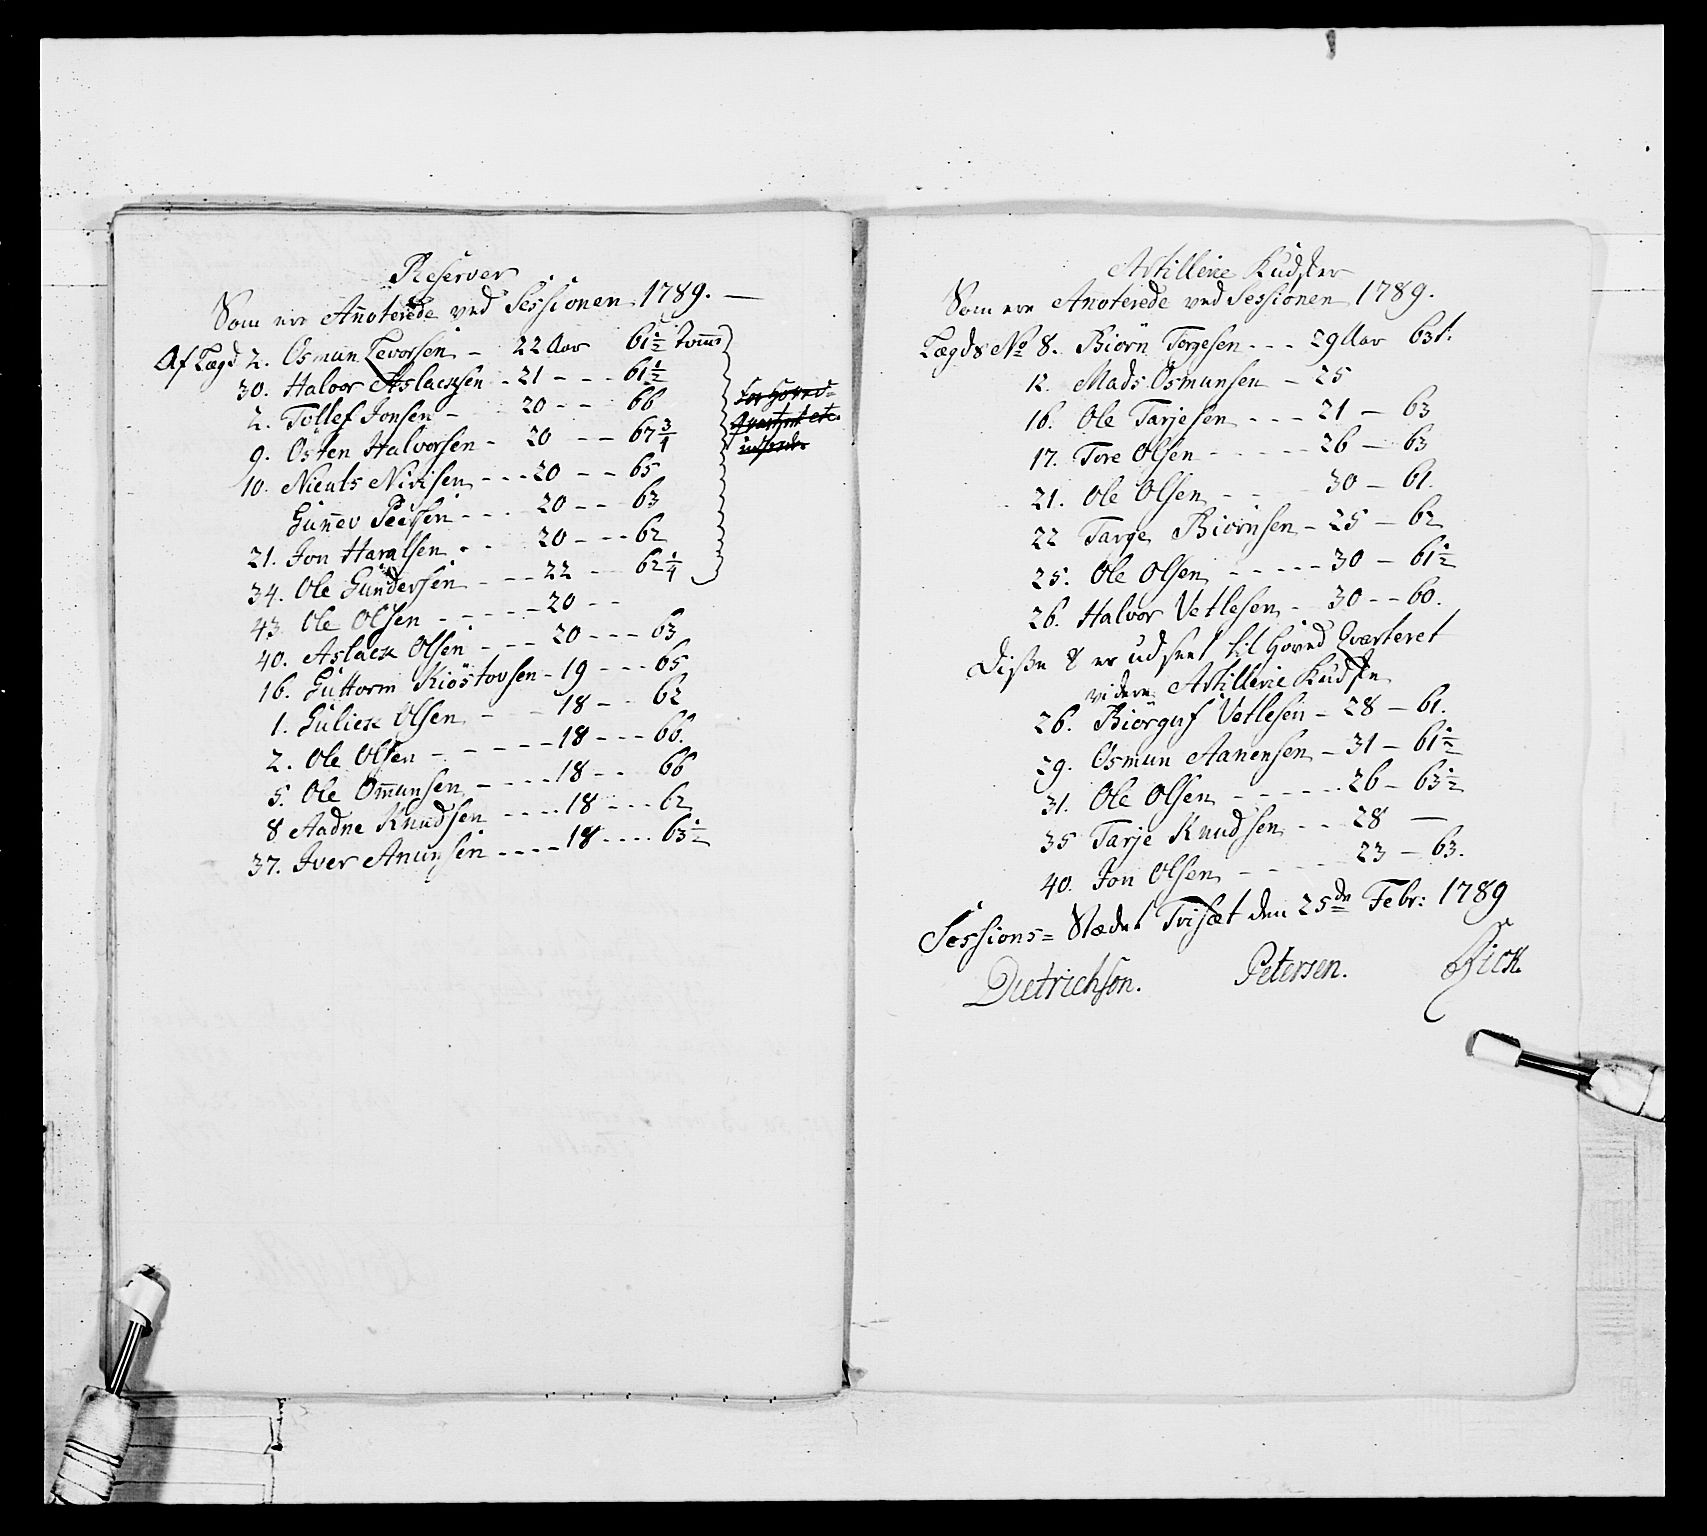 Reserver
Som ere Annoterede ved Sessionen 1789. —
Af Lægd 2. Osmun Tevorsen - 22 Aar 61½ Tomme
30. Halvor Aslacksen - 21 - - - 61½
2. Tollef Jonsen - 20 - - 66
9. Osten Halvorsen - 20 - - 67¾
10. Nieuls Nirisen - - - 20 - - 65
Gunnev - - - 20 - - 63
21. Jon Haralsen - - 20 - - - 62
34. Ole Gundersen - - - 22 - - 62¼
43. Ole Olsen - - - - - 20 - -
40. Aslack Olsen - - - 20 - - - 63
16. Guttorm Kiöstovsen - 19 - - - 65
1. Gulick Olsen - - 18 - - 62
2. Ole Olsen - - - - - 18 - - - 66.
5. Ole Ommunsen - - - - 18 - - 66
8 Aadne Knudsen - - - - 18 - - - 62
37. Iver Anunsen - - - - 18 - - - - 63½
For Hoved=
Qvarteret etc.
Artillerie Kudsker
Som ere Annoterede ved Sessionen 1789.
Lægds No 8. Biörn Torgesen - - - 29 Aar 63t.
12. Mads Osmunsen - 25
16. Ole Tarjesen - - - 21 - 63
17. Tore Olsen - - - - - 26 - 63
21. Ole Olsen - - 30 - 61.
22 Targe Biörnsen - 25 - 62
25. Ole Olsen - - - - - 30 - 61½
26. Halvor Vetlesen - 30 - - 60.
Disse 8 er udseet til Hoved Qvarteret
videre Artillerie Kudske
26. Biörguf Vetlesen - 28 - 61.
29. Osmun Aanensen - 31 - 61½
31. Ole Olsen - - - - - - 26 - 63½
35 Tarje Knudsen - - 28 —
40. Jon Olsen - - - - 23 - 63.
Sessions= Stædet Tvisæt den 25de Febr: 1789
Dietrichson. Petersen. Fick